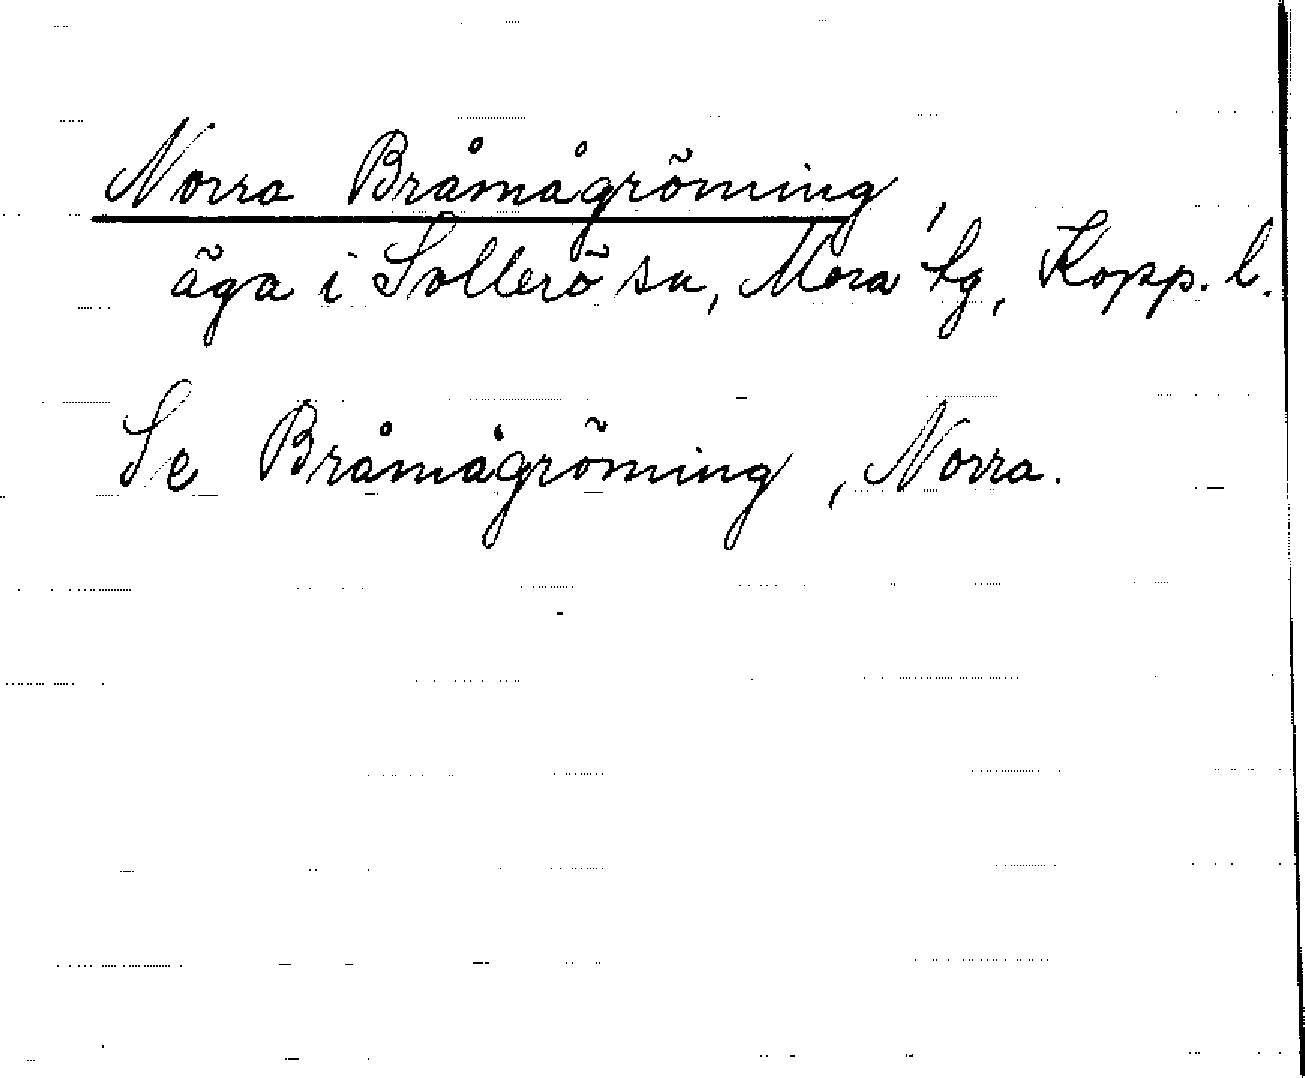 Norra Bråmågröning,
äga i Sollerö sn, Mora tg, Kopp. l.
Se Bråmågröning, Norra.